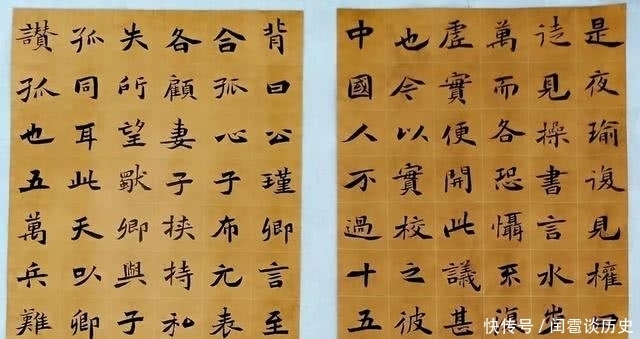 是夜瑜復見權曰
徒見操書言水步
萬而各恐懾不復
虛實便開此議甚
也今以實校之彼
中國人不過十五
背曰公瑾卿言至
合孤心子布元表
各顧妻子挾持私
失所望獨卿與子
孤同耳此天以卿
讚孤也五萬兵難
快传号／闰雹谈历史